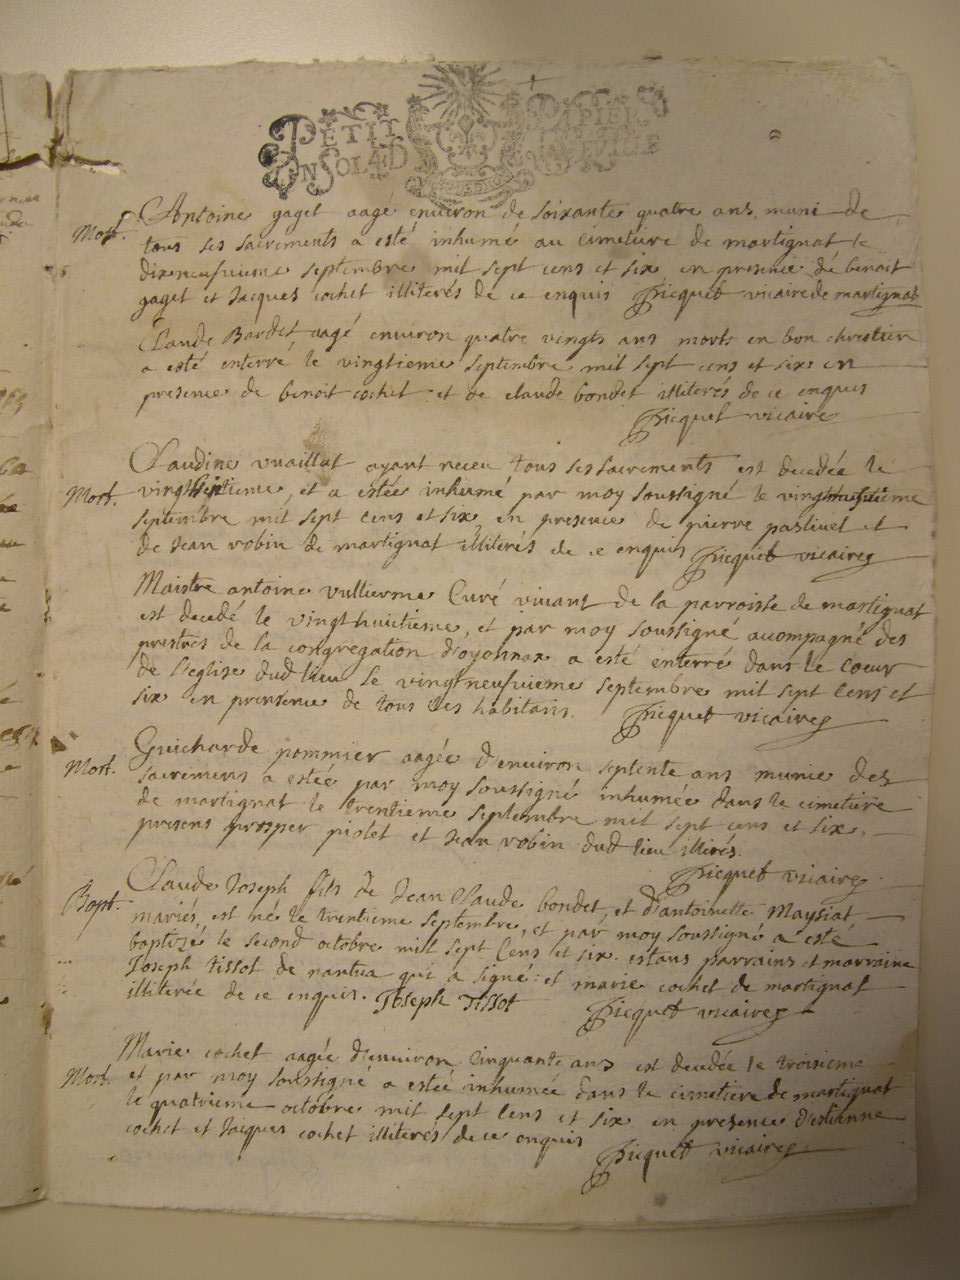 PETIT PAPIER
EN SOL
Mort.
Antoine gaget aagé environ de soixante quatre ans, muni de
tous ses sacrements a esté inhumé au cimetiere de martignat le
dixneufvieme septembre mil sept cens et six en presence de benoit
gaget et Jacques cochet illiterés de ce enquis Picquet vicaire de martignat
Claude Bardet aagé environ quatre vingts ans morts en bon chrestien
a esté enterré le vingtieme septembre mil sept cens et six en
presence de benoit cochet et de claude bondet illiterés de ce enquis
Picquet vicaire
Mort.
Claudine vuaillat ayant receu tous ses sacrements est decedée le
et a estée inhumé par moy soussigné le
septembre mil sept cens et six en presence de pierre et
de Jean robin de martignat illiterés de ce enquis Picquet vicaire
Maistre antoine vullierme Curé vivant de la parroisse de martignat
est decedé le vingthuitieme, et par moy soussigné acompagné des
prestres de la congregation d'oyonnax a esté enterré dans le coeur
de l'eglise dud lieu le vingtneufvieme septembre mil sept cens et
six en presence de tous les habitans. Picquet vicaire
Mort.
Guicharde pommier aagée d'environ septente ans munie des
sacremens a estée par moy soussigné inhumée dans le cimetiere
de martignat le trentieme septembre mil sept cens et six,
presens prosper piolet et Jean robin dud lieu illiterés.
Picquet vicaire
Bapt.
Claude Joseph fils de Jean Claude bondet, et d'antoinette Maysiat
mariés, est né le trentieme septembre, et par moy soussigné a esté
baptizé le second octobre mil sept cens et six. estans parrains et marraine
Joseph tissot de nantua qui a signé: et marie cochet de martignat
illiterée de ce enquis. Joseph Tissot Picquet vicaire
Mort.
Marie cochet aagée d'environ cinquante ans est decedée le troisieme
et par moy soussigné a estée inhumée dans le cimetiere de martignat
le quatrieme octobre mil sept cens et six en presence d'estienne
cochet et Jacques cochet illiterés de ce enquis
Picquet vicaire